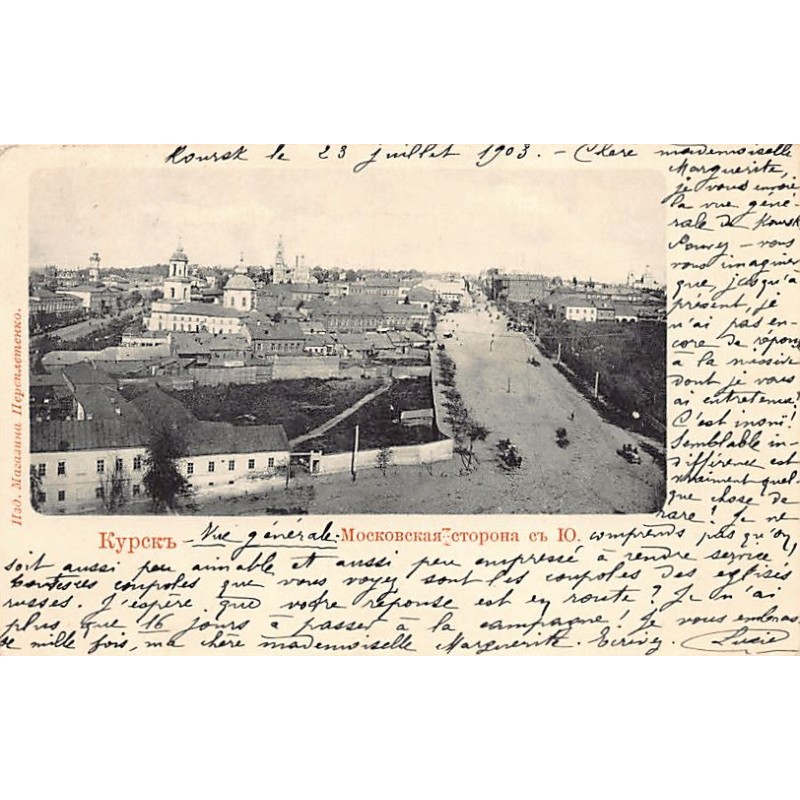 Koursk le 23 juillet 1903. - Chère mademoiselle
Marguerite,
je vous envoie
la vue géné-
rale de Koursk
Pouvez-vous
vous imaginer
que, jusqu'à
présent, je
n'ai pas en-
core de répon
à la
dont je vous
ai entretenue!
C'est inouï!
Semblable in-
différence est
vraiment quel-
que chose de
rare! Je ne
Изд. Магазина Переплетенко.
Курскъ - Vue générale. Московская сторона съ Ю. comprends pas qu'on
soit aussi peu aimable et aussi peu empressé à rendre service!
Toutes ces coupoles que vous voyez sont les coupoles des eglises
russes. J'espère que votre réponse est en route? Je n'ai
plus que 16 jours à passer à la campagne! Je vous embras-
se mille fois, ma chère mademoiselle Marguerite. Ecrivez. Lucie